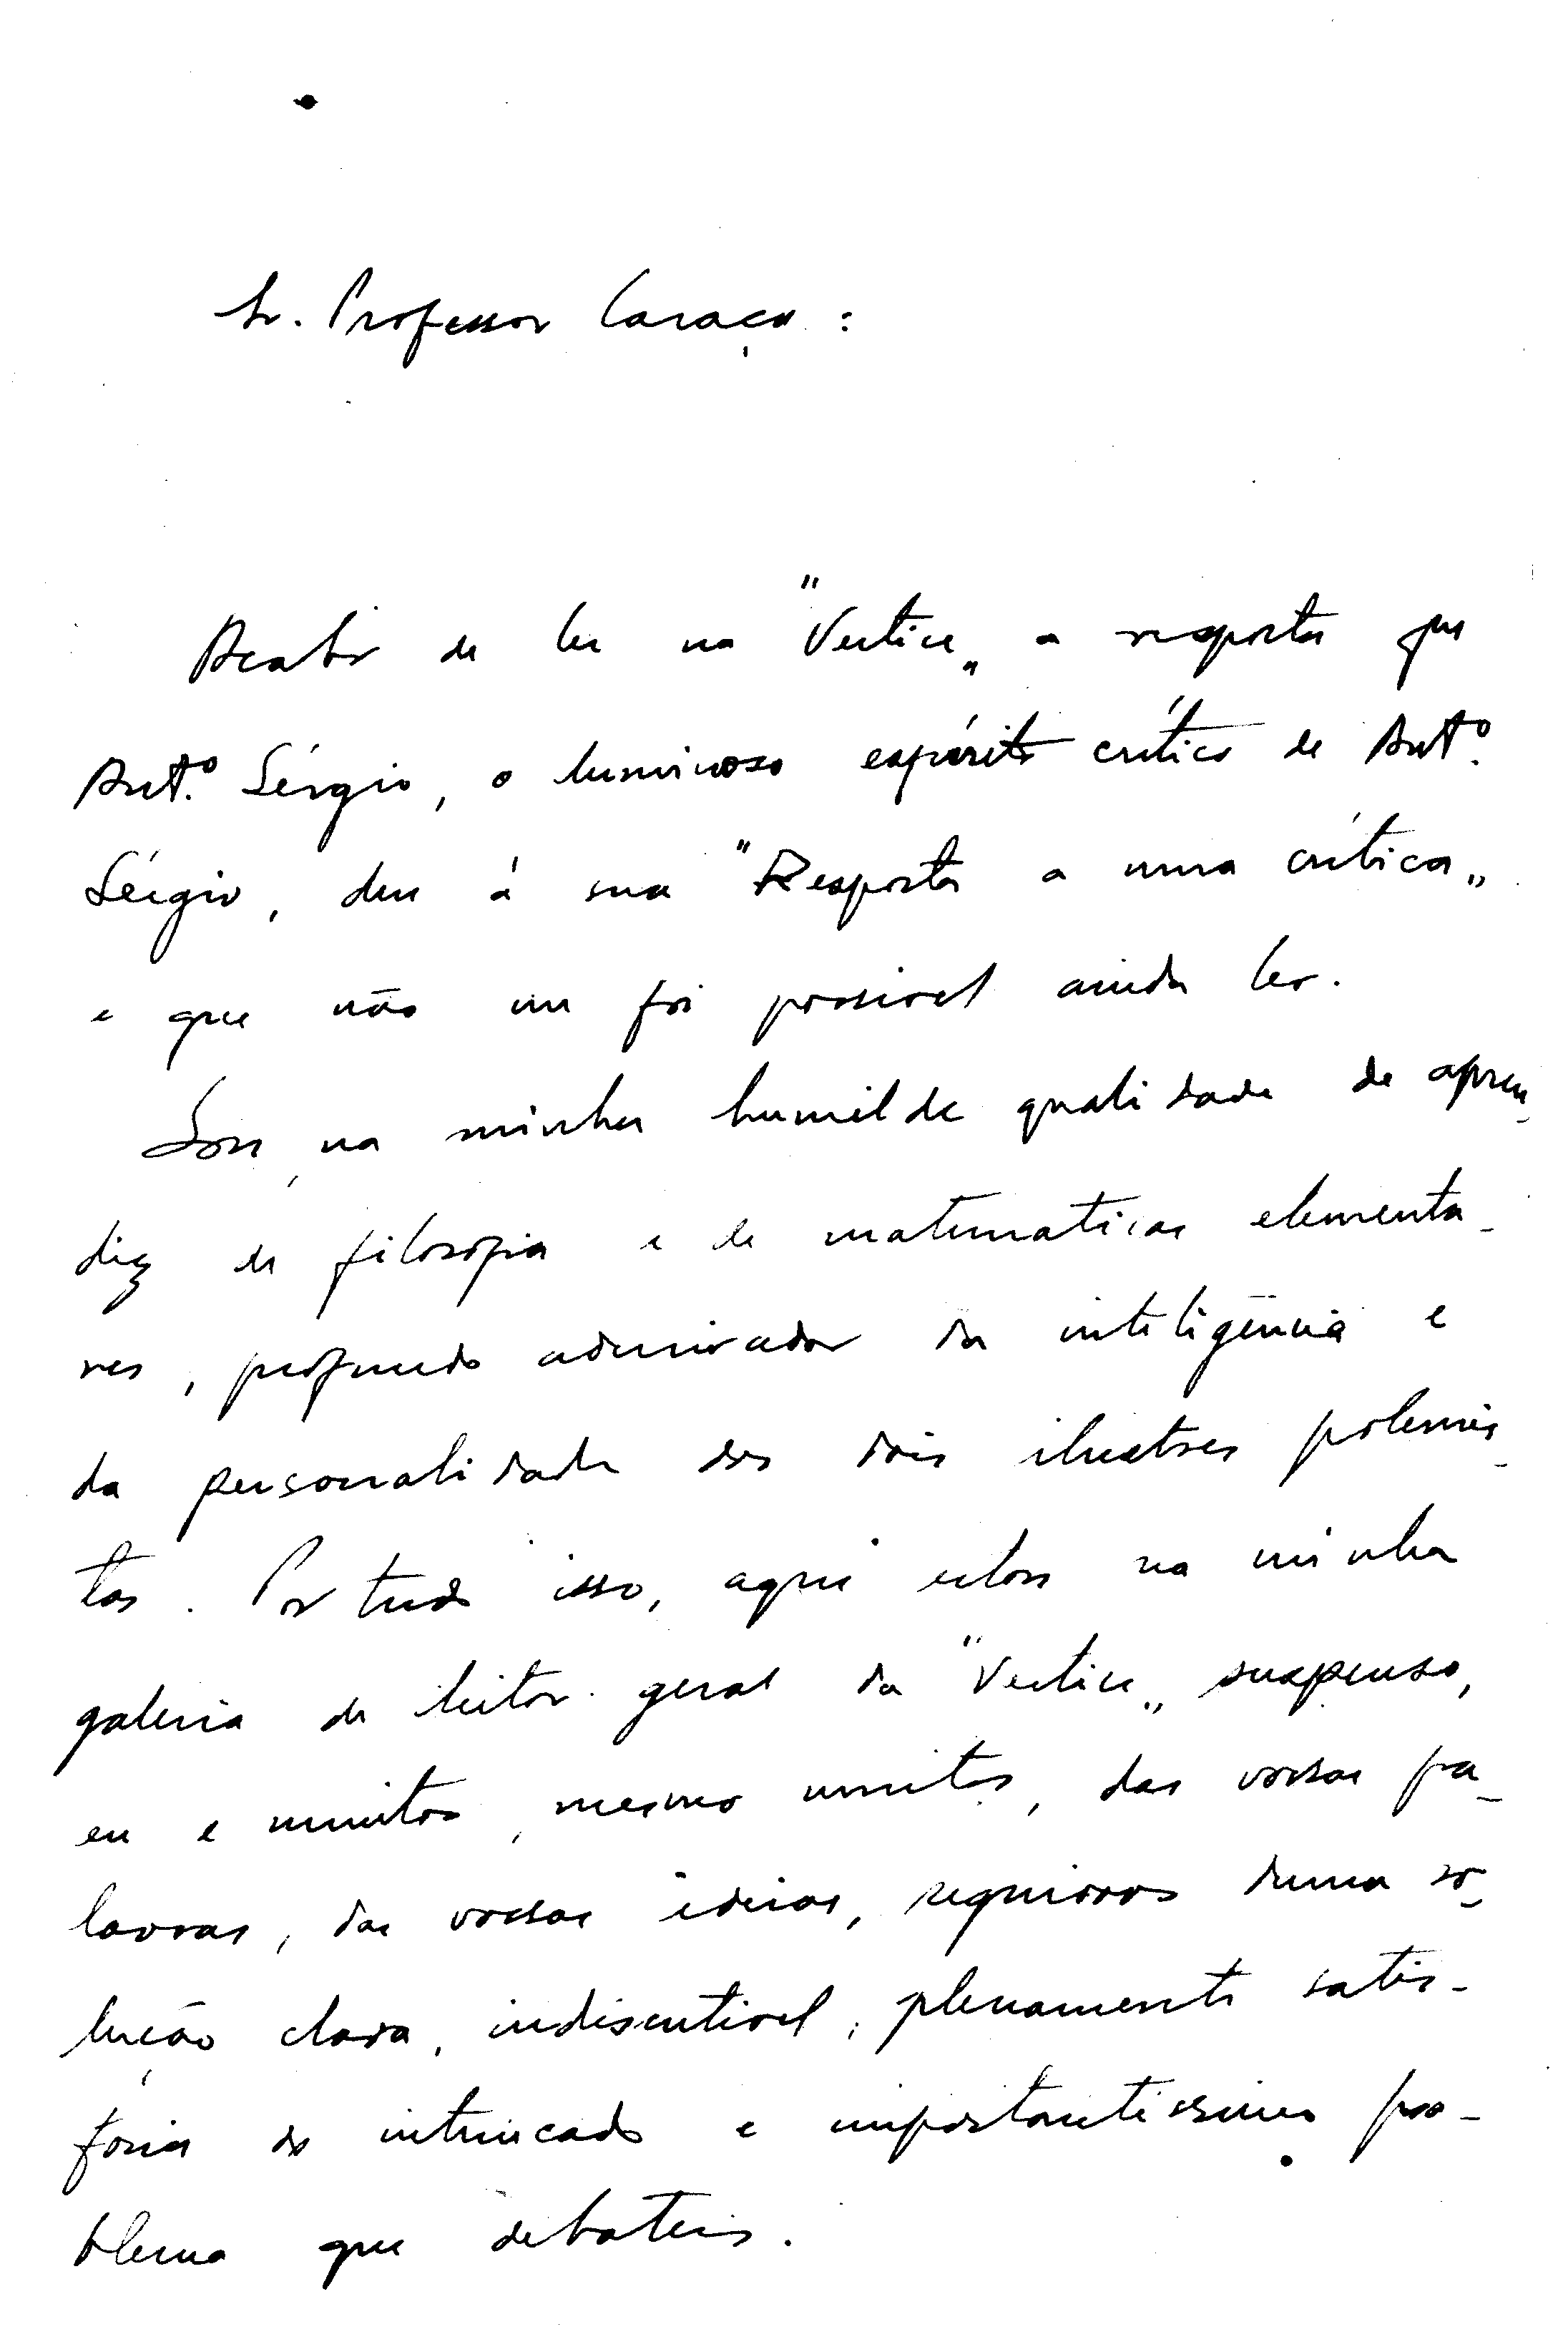 Sr. Professor Caraça:
Acabo de ler na "Vertice" a resposta que
Antº. Sérgio, o luminoso espírito crítico de Antº.
Sérgio, deu á sua "Resposta a uma crítica"
e que não me foi possivel ainda ler.
Sou, na minha humilde qualidade de apren-
diz de filosofia e de matematicas elementa-
res, profundo admirador da inteligência e
da personalidade dos dois ilustres polemis-
tas. Por tudo isso, aqui estou na minha
galeria de leitor geral da "Vertice" suspenso,
eu e muitos, mesmo muitos, das vossas pa-
lavras, das vossas ideias, sequiosos duma so-
lução clara, indiscutivel, plenamente satis-
foria do intrincado e importantissimo pro-
blema que debateis.